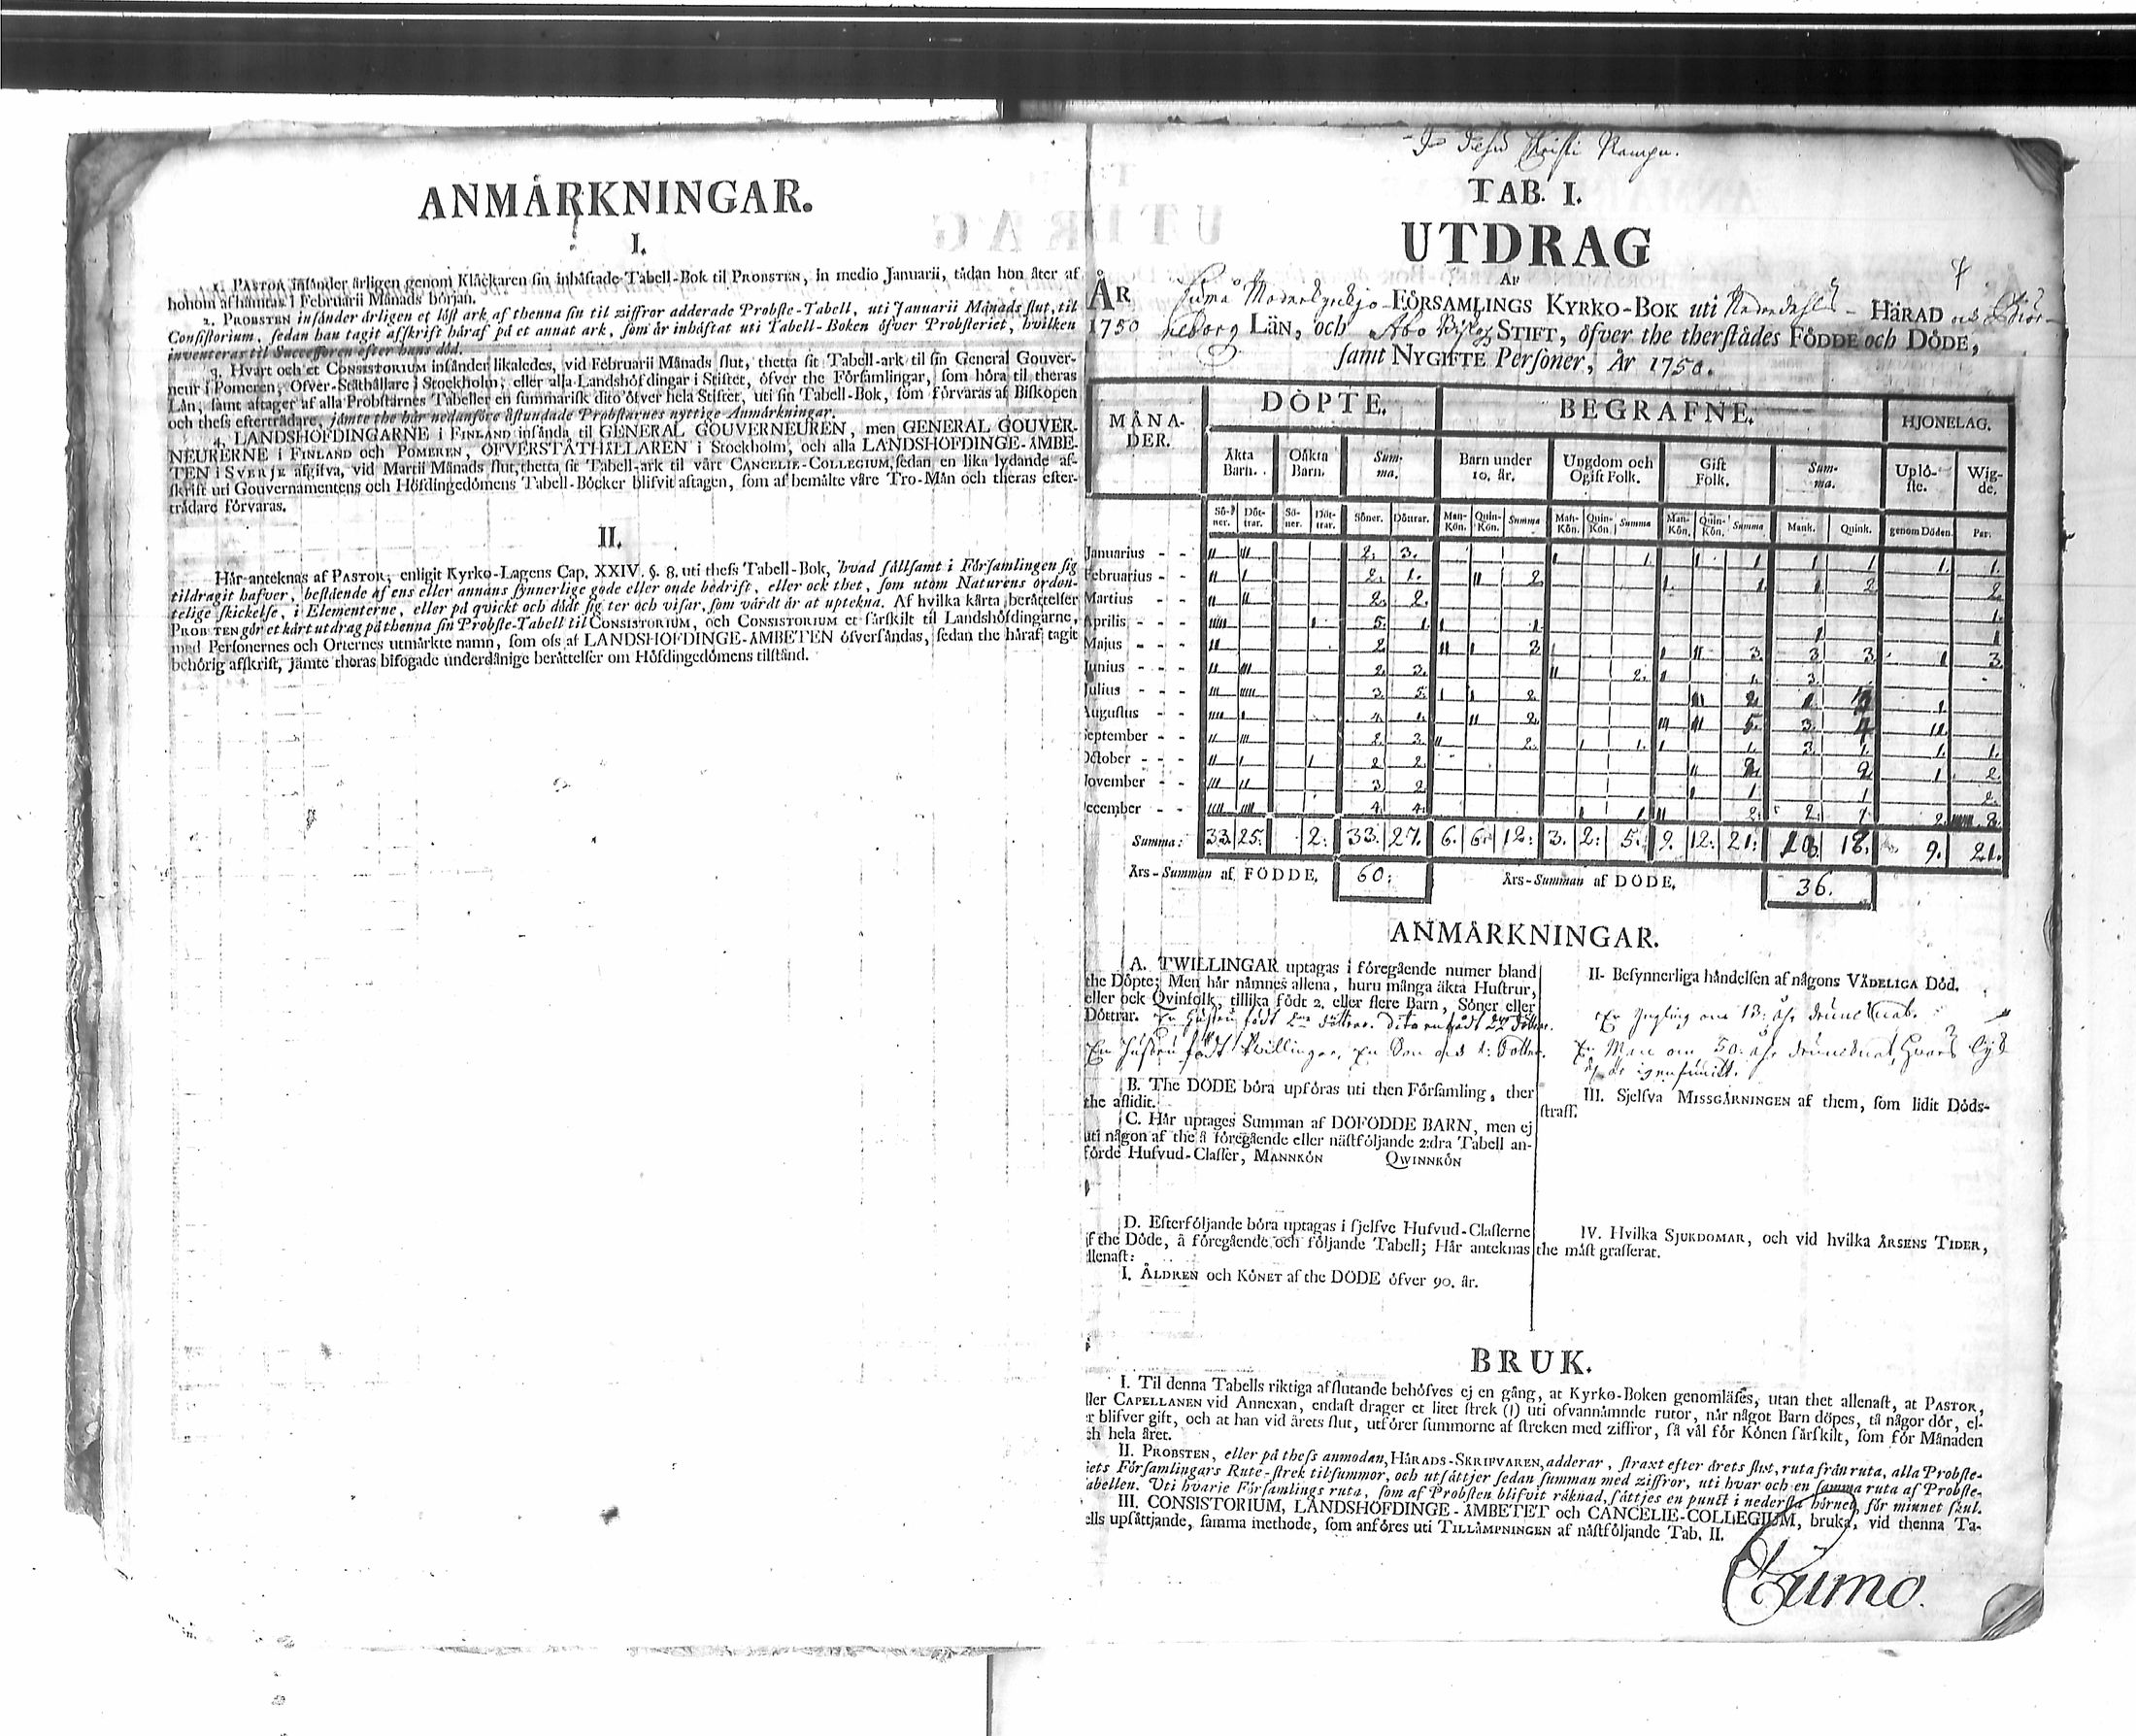 ANMÅRKNINGAR.
I.
1. PASTOR insånder årligen genom Klåckaren sin inhåftade Tabell-Bok til PROBSTEN, in medio Januarii, tådan hon åter af
honom afhämtas i Februarii Månads början.
2. PROBSTEN insånder årligen et löst ark af thenna sin til ziffror adderade Probste-Tabell, uti Januarii Månads slut, til
Consistorium, sedan han tagit afskrift håraf på et annat ark, som år inhåftat uti Tabell-Boken öfver Probsteriet, hvilken
inventeras til Successoren efter hans död.
3. Hvart och et CONSISTORIUM insånder likaledes, vid Februarii Månads slut, thetta sit Tabell-ark til sin General Gouver-
neur i Pomeren, Öfver-Ståthållare i Stockholm, eller alla Landshöfdingar i Stiftet, öfver the Församlingar, som höra til theras
Lån; samt aftager af alla Probstarnes Tabeller en summarisk dito öfver hela Stiftet, uti sin Tabell-Bok, som förvaras af Biskopen
och thess efterträdare, jämte the hår nedanföre åstundade Probstarnes nyttige Anmärkningar.
4. LANDSHÖFDINGARNE i FINLAND insånda til GENERAL GOUVERNEUREN, men GENERAL GOUVER-
NEURERNE i FINLAND och POMEREN, ÖFVERSTÅTHÅLLAREN i Stockholm, och alla LANDSHÖFDINGE-ÅMBE-
TEN i SVERJE afgifva, vid Martii Månads slut, thetta sit Tabell-ark til vårt CANCELIE-COLLEGIUM, sedan en lika lydande af-
skrift uti Gouvernamentens och Höfdingedömens Tabell-Böcker blifvit aftagen, som af bemålte våre Tro-Mån och theras efter-
trädare förvaras.
II.
Hår anteknas af PASTOR, enligit Kyrko-Lagens Cap. XXIV. §. 8. uti thess Tabell-Bok, hvad sållsamt i Församlingen sig
tildragit hafver, bestående af ens eller annans synnerlige gode eller onde bedrift, eller ock thet, som utom Naturens ordon-
telige skickelse, i Elementerne, eller på qvickt och dödt sig ter och visar, som vårdt år at uptekna. Af hvilka kårta beråttelser
PROBSTEN gör et kårt utdrag på thenna sin Probste-Tabell til CONSISTORIUM, och CONSISTORIUM et sårskilt til Landshöfdingarne,
med Personernes och Orternes utmärkte namn, som oss af LANDSHÖFDINGE-ÅMBETEN öfversåndas, sedan the håraf tagit
behörig afskrift, jämte theras bifogade underdånige beråttelser om Höfdingedömens tilstånd.
TAB. I.
UTDRAG
AF
ÅR FÖRSAMLINGS KYRKO-BOK uti HÄRAD
1750 LÄN, och Åbo STIFT, öfver the therstådes FÖDDE och DÖDE,
samt NYGIFTE Personer, År 1750.
MÅNA-DER. DÖPTE. BEGRAFNE. HJONELAG.
Äkta Barn. Oåkta Barn. Sum-ma. Barn under 10. år. Ungdom och Ogift Folk. Gift Folk. Sum-ma. Uplö-ste. Wig-de.
Sö-ner. Döt-trar. Sö-ner. Döt-trar. Söner. Döttrar. Man-Kön. Quin-Kön. Summa Man-Kön. Quin-Kön. Summa Man-Kön. Quin-Kön. Summa Mank. Quink. genom Döden. Par.
Januarius - - 2. 3. 1. 1 1 1 1. 1.
Februarius - - 2. 1. 2 1. 1. 2 2
Martius - - 2. 2. 1.
Aprilis - - 5. 1. 1. 1 1
Majus - - 2 3 3. 3 3 1 3
Junius - - 2. 3. 2. 1. 3.
Julius - - 3. 5. 2. 1.
Augustus - - 4. 1. 2. 5. 3. 4
September - - 2. 3. 2. 1. 1. 3. 1. 1. 1.
October - - 2 2. 2 1 2
November - - 3 2 1 1 2.
December - - 4. 4. 1 2. 2. 2. 2.
Summa: 33. 25. 2: 33. 27. 6. 6. 12: 3. 2: 5. 9. 12: 21: 18. 18. 9. 21.
Års-Summan af FÖDDE, 60: Års-Summan af DÖDE, 36.
ANMÅRKNINGAR.
A. TWILLINGAR uptagas i föregående numer bland
the Döpte; Men hår nåmnes allena, huru många åkta Hustrur,
eller ock Qvinfolk, tillika födt 2. eller flere Barn, Söner eller
Döttrar. En Hustru födt döttrar.
En Hustru födt Twillingar, en Son och 1: Dotter.
B. The DÖDE böra upföras uti then Församling, ther
the aflidit.
C. Hår uptages Summan af DÖFÖDDE BARN, men ej
uti någon af the å föregående eller nåstföljande 2:dra Tabell an-
förde Hufvud-Classer, MANNKÖN QWINNKÖN
D. Efterföljande böra uptagas i sjelfve Hufvud-Classerne
af the Döde, å föregående och följande Tabell; Hår anteknas
allenast:
I. ÅLDREN och KÖNET af the DÖDE öfver 90. år.
II. Besynnerliga håndelsen af någons VÅDELIGA Död.
En Yngling om 13: åhr
En Man om 50. åhr
igenfunnit.
III. Sjelfva MISSGÅRNINGEN af them, som lidit Döds-
straff.
IV. Hvilka SJUKDOMAR, och vid hvilka ÅRSENS TIDER,
the måst grasserat.
BRUK.
I. Til denna Tabells riktiga afslutande behöfves ej en gång, at Kyrko-Boken genomläses, utan thet allenast, at PASTOR,
ller CAPELLANEN vid Annexan, endast drager et litet strek (I) uti ofvannämnde rutor, når något Barn döpes, tå någor dör, el-
r blifver gift, och at han vid årets slut, utförer summorne af streken med ziffror, få vål för Könen sårskilt, som för Månaden
ch hela året.
II. PROBSTEN, eller på thess anmodan, HÅRADS-SKRIFVAREN, adderar, straxt efter årets slut, ruta från ruta, alla Probste-
iets Församlingars Rute-strek tilsummor, och utsåttjer sedan summan med ziffror, uti hvar och en samma ruta af Probste-
abellen. Uti hvarie Församlings ruta, som af Probsten blifvit råknad, såttjes en punct i nedersta hörnet, för minnet skul.
III. CONSISTORIUM, LANDSHÖFDINGE-ÅMBETET och CANCELIE-COLLEGIUM, bruka, vid thenna Ta-
ells upsåttjande, samma methode, som anföres uti TILLÄMPNINGEN af nåstföljande Tab. II.
Eumo.